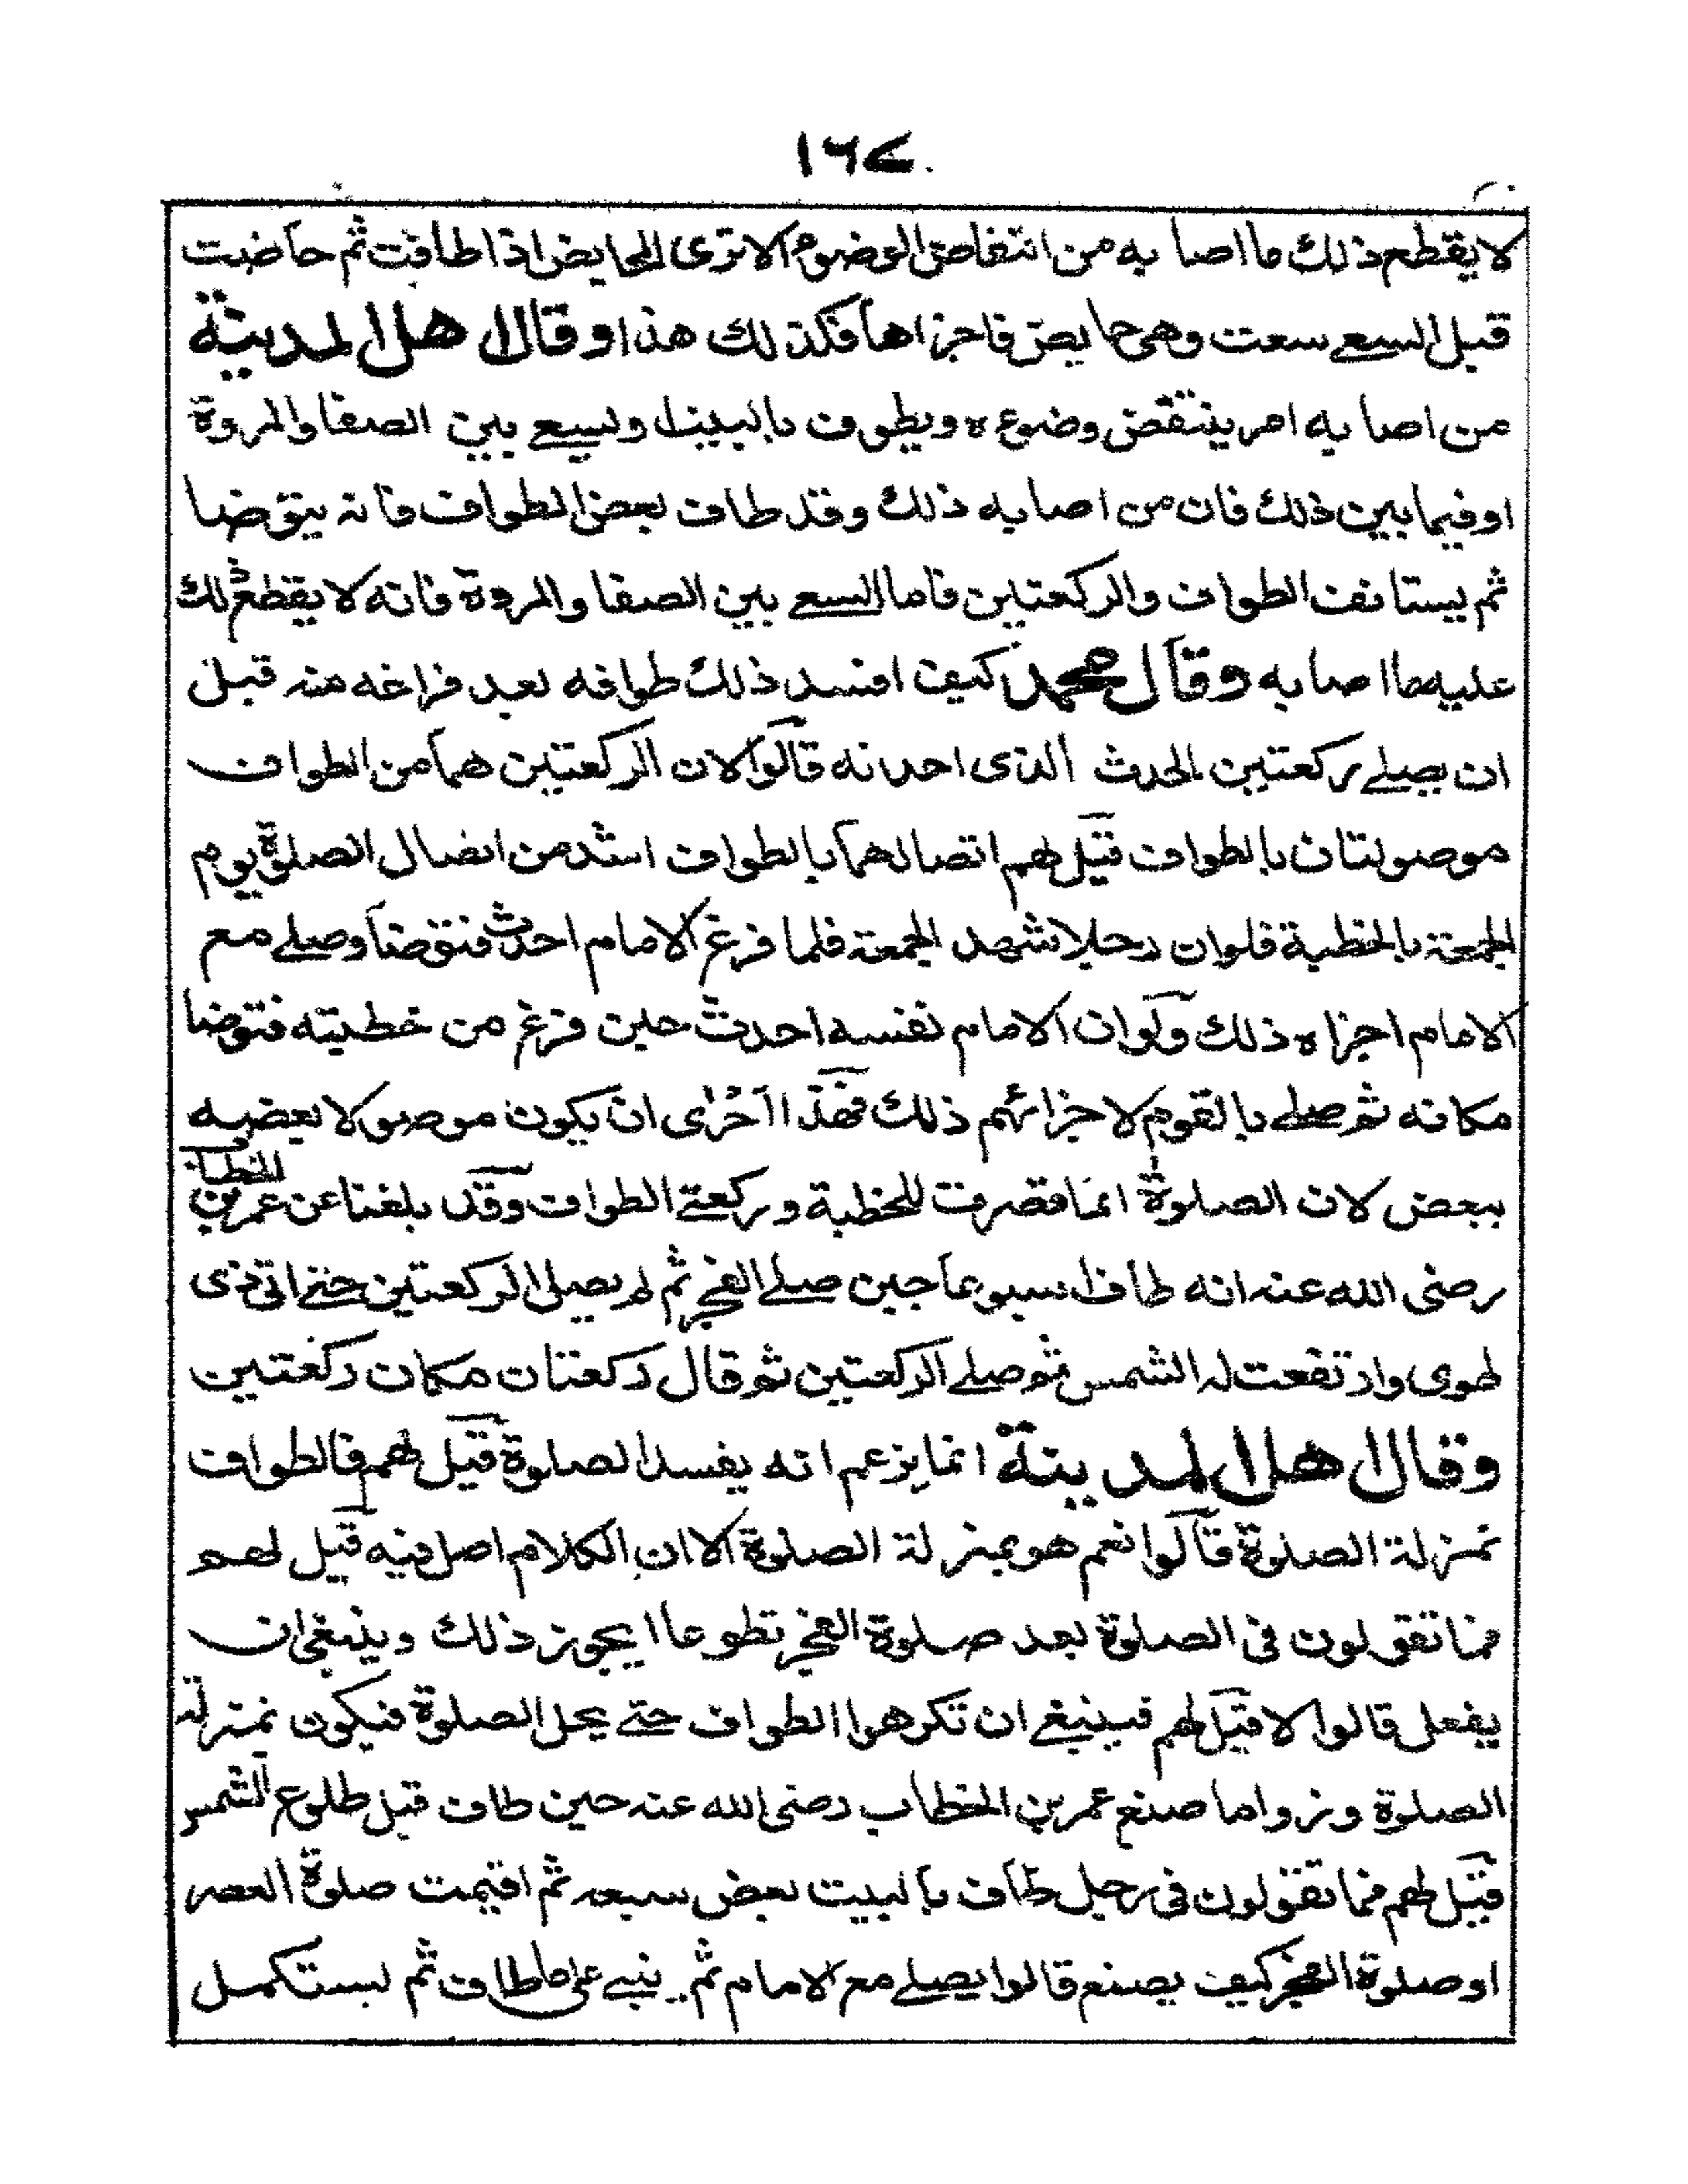 ١٦٧
لا يقطع ذلك ما اصابه من انتقاض الوضوء الا ترى الحايض اذا طافت ثم حاضت
قبل السعے سعت وهى حايض فاجزاها فكذلك هذا وقال اهل المدينة
من اصابه امر ينتقض وضوءه ويطوف بالبيت او يسعے بين الصفا والمروة
او فيما بين ذلك فان من اصابه ذلك وقد طاف بعض الطواف فانه يتوضا
ثم يستانف الطواف والركعتين فاما السعے بين الصفا والمروة فانه لا يقطع ذلك
عليه ما اصابه وقال محمد كيف افسد ذلك طوافه بعد فراغه منه قبل
ان يصلے ركعتين الحدث الذى احدثه قالوا لان الركعتين هما من الطواف
موصولتان بالطواف قيل لهم اتصالهما بالطواف اشد من اتصال الصلوة يوم
الجمعة بالخطبة فلو ان رجلا شهد الجمعة فلما فرغ الامام احدث فتوضا وصلے مع
الامام اجزاه ذلك ولو ان الامام نفسه احدث حين فرغ من خطبته فتوضا
مكانه ثم صلے بالقوم لاجزائهم ذلك فهذا احرى ان يكون موصولا بعضه
ببعض لان الصلوة انما قصرت للخطبة وركعتے الطواف وقد بلغنا عن عمر بن الخطاب
رضى الله عنه انه طاف اسبوعا حين صلے الفجر ثم لم يصلى الركعتين حتے اتى ذى
طوى وارتفعت له الشمس ثم صلے الركعتين ثم قال ركعتان مكان ركعتين
وقال اهل المدينة انما يزعم انه يفسد الصلوة قيل لهم فالطواف
بمنزلة الصلوة قالوا نعم هو بمنزلة الصلوة الا ان الكلام احل فيه قيل لهم
فما تقولون فى الصلوة بعد صلوة الفجر تطوعا ايجوز ذلك وينبغى ان
يفعل قالوا لا قيل لهم فينبغے ان تكرهوا الطواف حتے يحل الصلوة فيكون بمنزلة
الصلوة وزواما صنع عمر بن الخطاب رضى الله عنه حين طاف قبل طلوع الشمس
قيل لهم فما تقولون فى رجل طاف بالبيت بعض سبعه ثم اقيمت صلوة العصر
او صلوة الفجر كيف يصنع قالوا يصلے مع الامام ثم يبنے على ما طاف ثم يستكمل